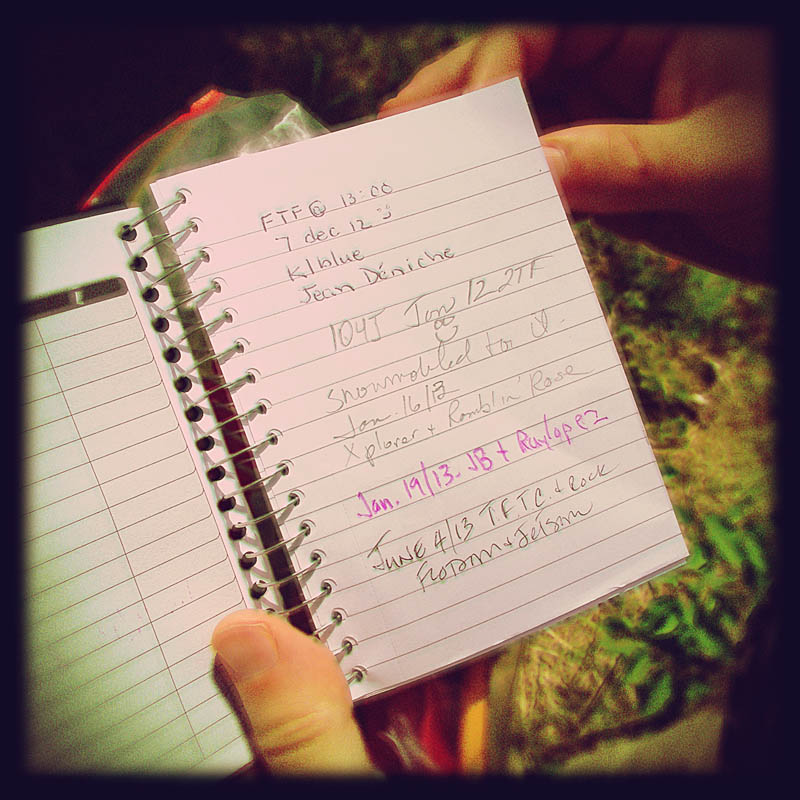 FTF @ 13:00
7 dec 12
K/blue
Jean Déniche
Jan 12 2TF
Snowmobled to it.
Jan. 16/13
Xplorer + Ramblin' Rose
Jan. 19/13. JB +
JUNE 4/13 TFTC. + Rock
Flotsam & Jetsam